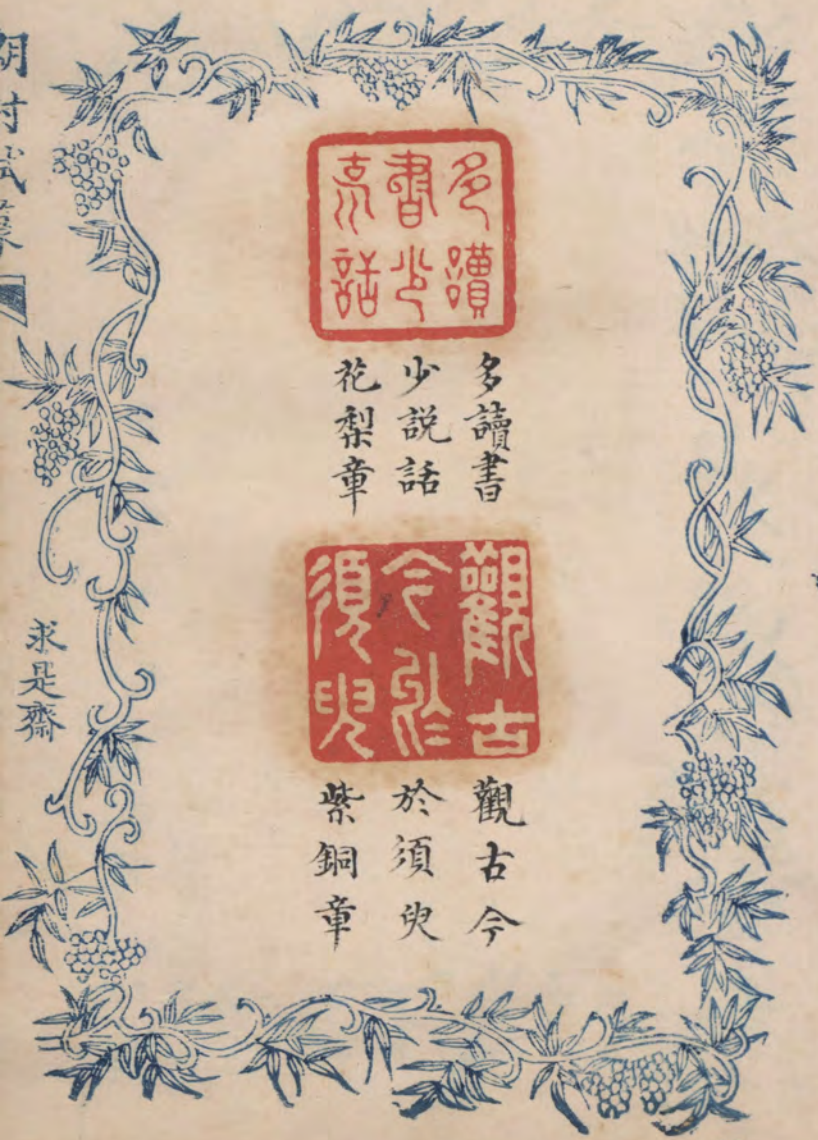 多讀
書少
話
多讀書
少説話
花梨章
觀古
今於
須臾
觀古今
於須臾
紫銅章
求是齋